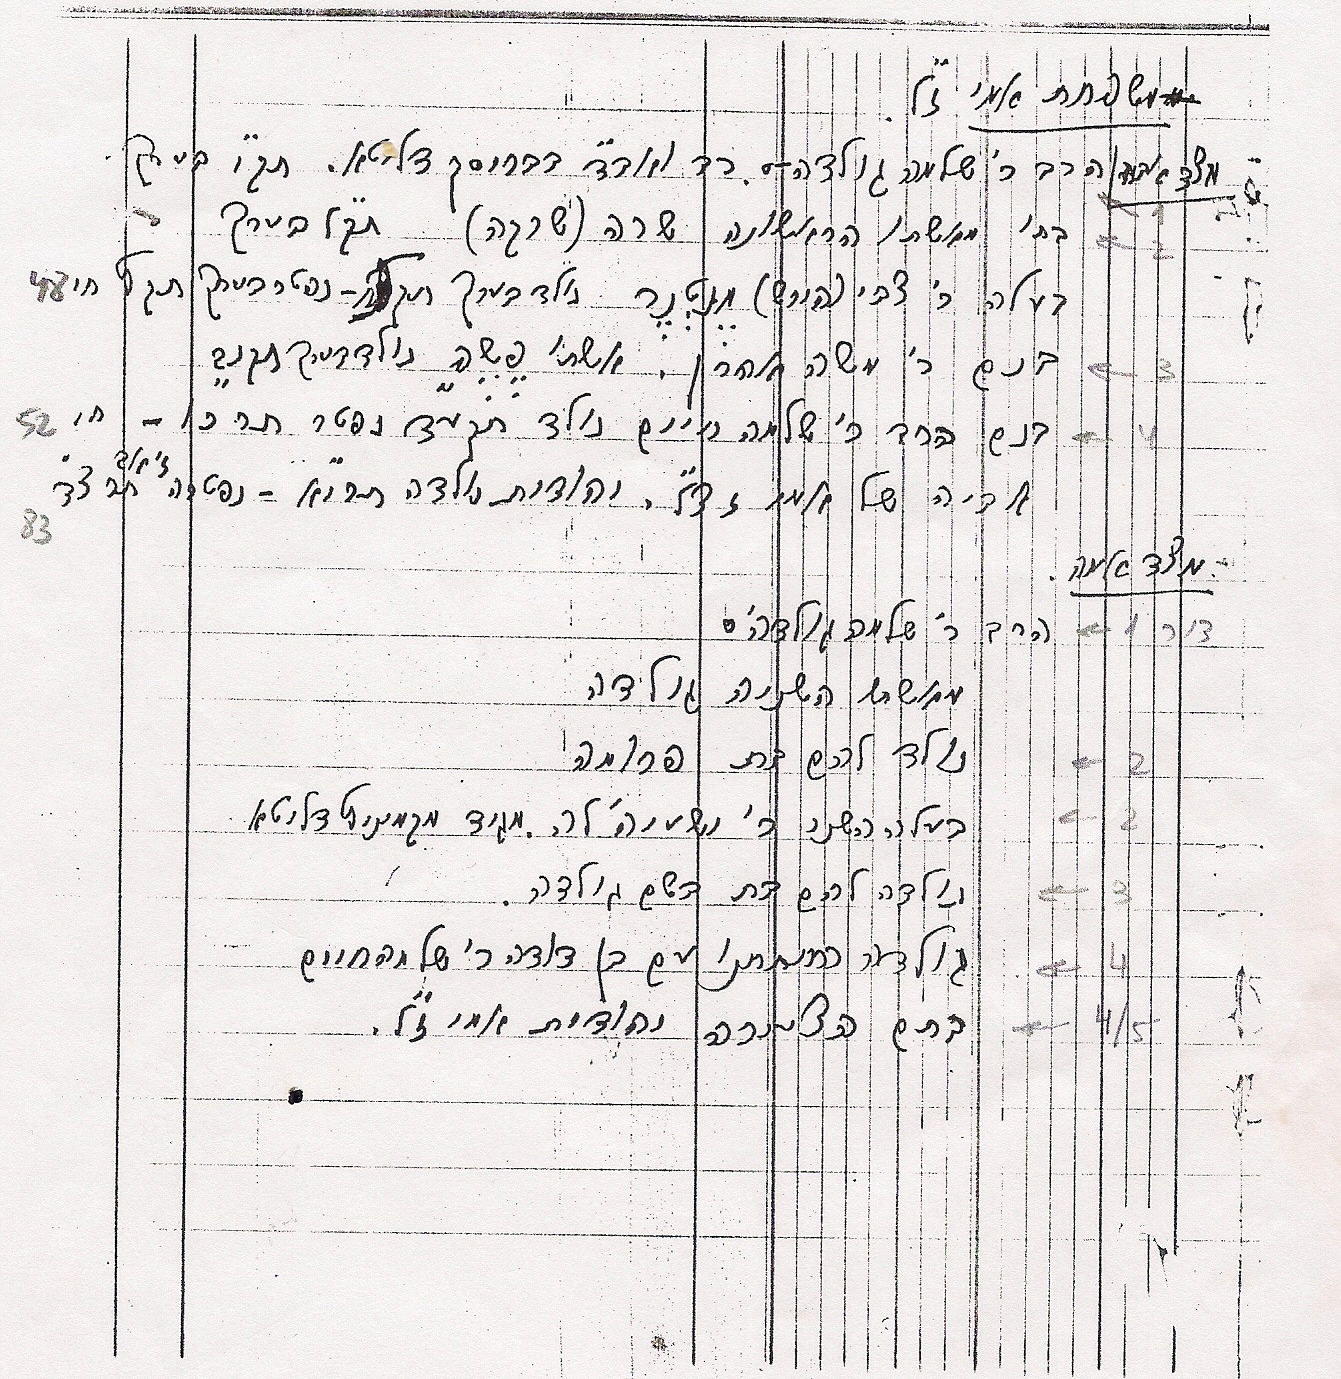 משפחת אמי ז"ל.
מצד אביה הרב ר' שלמה גולדה-ס. רד ואבד"ד דבריסק דליטא. תק"ו בערך
1
2 ← בתו מאשתו הראשונה שרה (שרקה) תק"ל בערך
בעלה ר' צבי (הירש) נולד בערך - נפטר בערך חי 48
3 ← בנם ר' משה אהרן. אשתו פשה נולד בערך תקנ"ב
4 ← בנם הרד ר' שלמה חיים נולד תקע"ד נפטר תרכ"ו - חי 52
אביה של אמי זצ"ל. יהודית נולדה תרי"א - נפטרה תרצ"ד
83
מצד אמה.
דור 1 ← הרב ר' שלמה גולדה'ס
מאשתו השניה גולדה
2 ← נולד להם בת פרומה
2 ← בעלה השני ר' ישעיה'לה. מגיד מקמיניץ דליטא
3 ← נולדה להם בת בשם גולדה.
4 ← גולדה התחתנו עם בן דודה ר' שלמה חיים
4/5 ← בתם הצעירה יהודית אמי ז"ל.